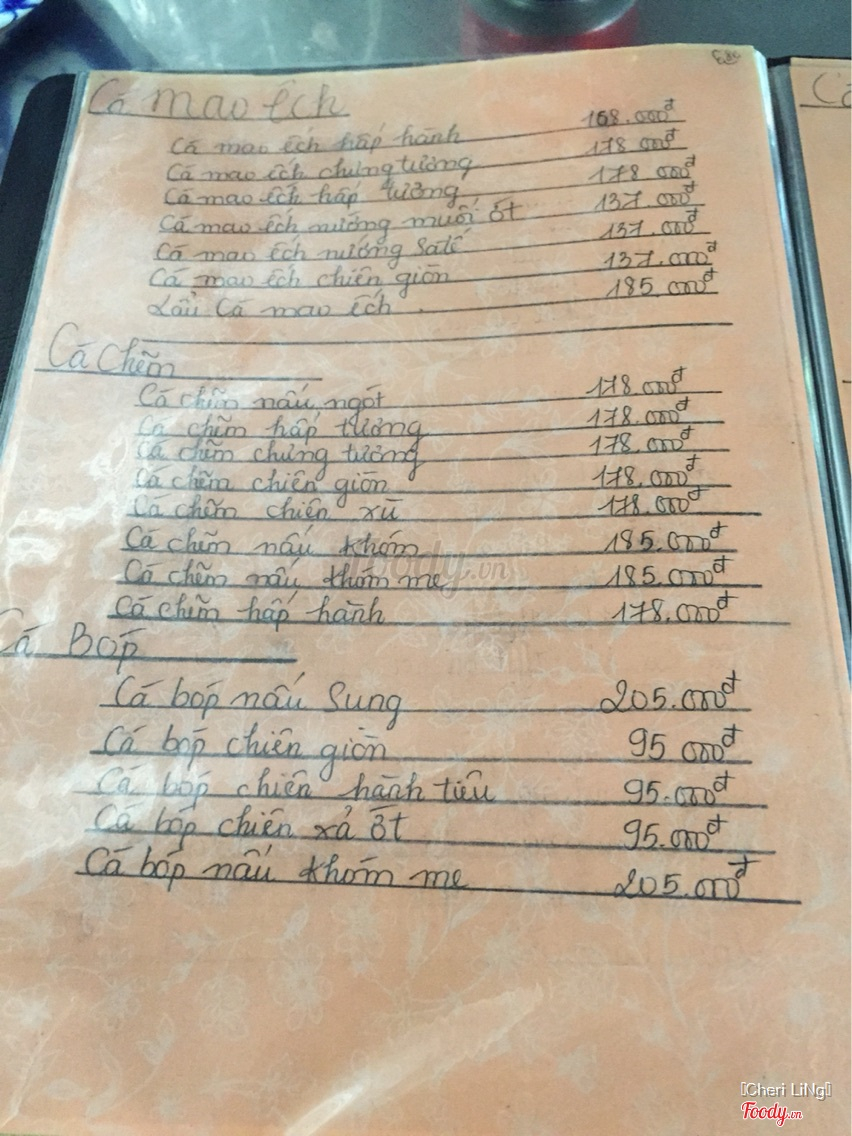 Cá mao ếch
Cá mao ếch hấp hành 168.000đ
Cá mao ếch chưng tương 178 000đ
Cá mao ếch hấp tương 178 000đ
Cá mao ếch nướng muối ớt 137.000đ
Cá mao ếch nướng Satế 137.000đ
Cá mao ếch chiên giòn 137.000đ
Lẩu Cá mao ếch 185.000đ
Cá Chẽm
Cá chẽm nấu ngót 178.000đ
Cá chẽm hấp tương 178.000đ
Cá chẽm chưng tương 178.000đ
Cá chẽm chiên giòn 178.000đ
Cá chẽm chiên xù 178.000đ
Cá chẽm nấu khóm 185.000đ
Cá chẽm nấu khóm me 185.000đ
Cá chẽm hấp hành 178.000đ
Cá Bóp
Cá bóp nấu Sung 205.000đ
Cá bóp chiên giòn 95 000đ
Cá bóp chiên hành tiêu 95.000đ
Cá bóp chiên xả ớt 95.000đ
Cá bóp nấu khóm me 205.000đ
Foody.vn
[Cheri LiNg]
Foody.vn